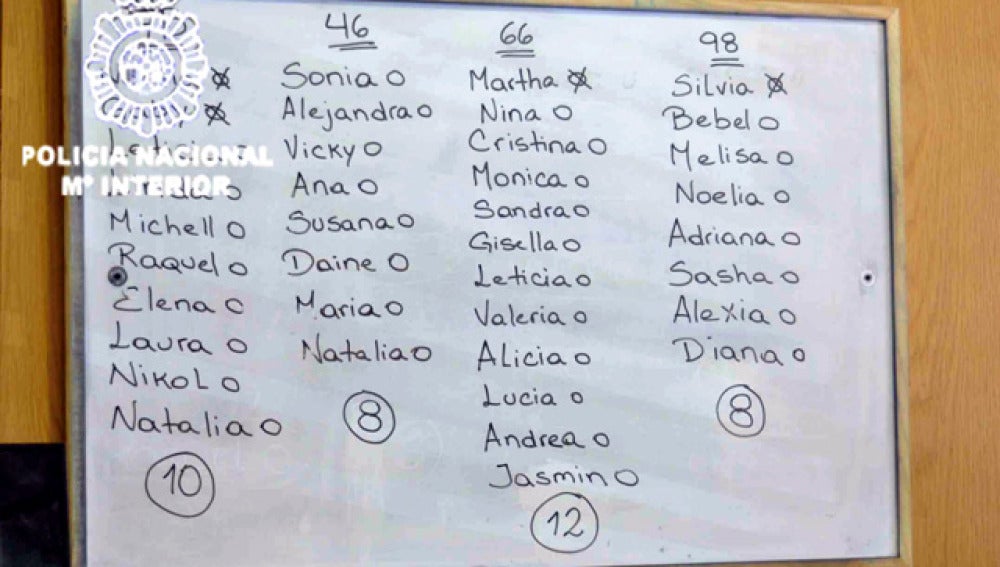 POLICIA NACIONAL
Mº INTERIOR
Michell O
Raquel O
Elena O
Laura O
Nikol O
Natalia O
10
46
Sonia O
Alejandra O
Vicky O
Ana O
Susana O
Daine O
Maria O
Natalia O
8
66
Martha
Nina O
Cristina O
Monica O
Sandra O
Gisella O
Leticia O
Valeria O
Alicia O
Lucia O
Andrea O
Jasmin O
12
98
Silvia
Bebel O
Melisa O
Noelia O
Adriana O
Sasha O
Alexia O
Diana O
8